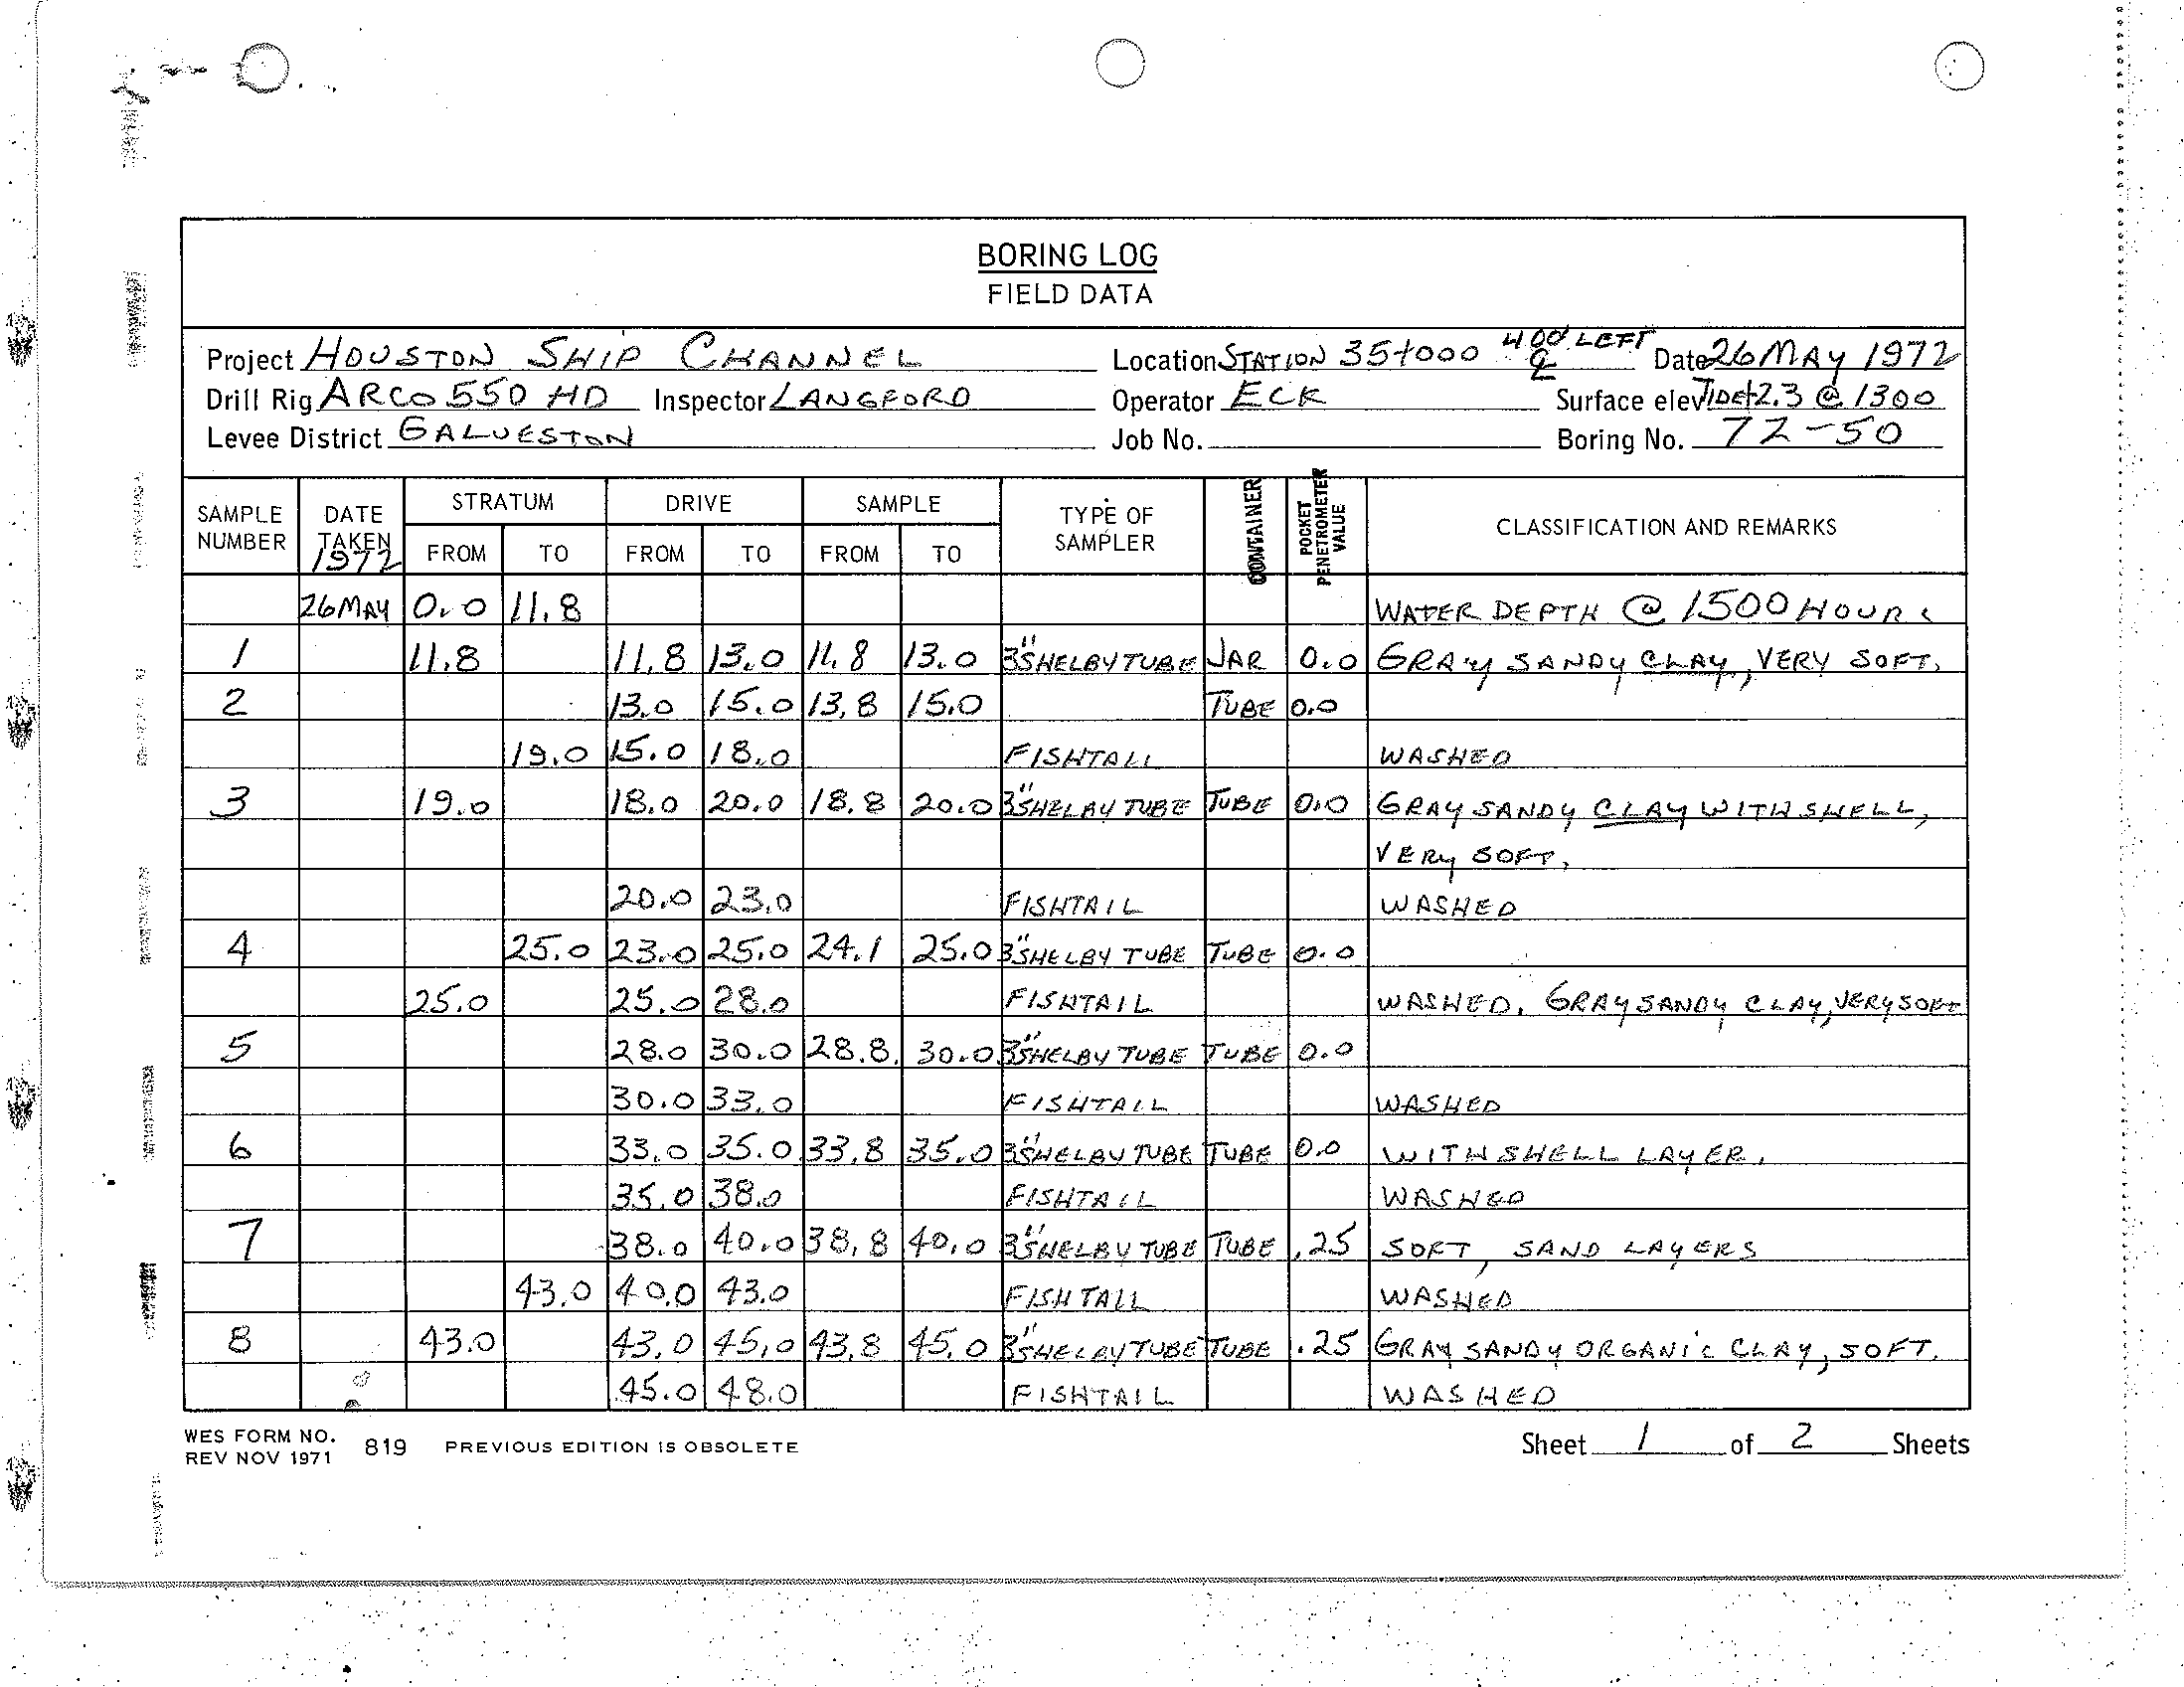 BORING LOG
FIELD DATA
Project HOUSTON SHIP CHANNEL Location STATION 35+000 400' LEFT ℄ Date 26 MAY 1972
Drill Rig ARCO 550 HD Inspector LANGFORD Operator ECK Surface elev TIDE +2.3 @ 1300
Levee District GALVESTON Job No. Boring No. 72-50
SAMPLE NUMBER DATE TAKEN 1972 STRATUM FROM TO DRIVE FROM TO SAMPLE FROM TO TYPE OF SAMPLER CONTAINER POCKET PENETROMETER VALUE CLASSIFICATION AND REMARKS
26 MAY 0.0 11.8 WATER DEPTH @ 1500 HOURS
1 11.8 11.8 13.0 11.8 13.0 3" SHELBY TUBE JAR 0.0 GRAY SANDY CLAY, VERY SOFT.
2 13.0 15.0 13.8 15.0 TUBE 0.0
19.0 15.0 18.0 FISHTAIL WASHED
3 19.0 18.0 20.0 18.8 20.0 3" SHELBY TUBE TUBE 0.0 GRAY SANDY CLAY WITH SHELL,
VERY SOFT,
20.0 23.0 FISHTAIL WASHED
4 25.0 23.0 25.0 24.1 25.0 3" SHELBY TUBE TUBE 0.0
25.0 25.0 28.0 FISHTAIL WASHED. GRAY SANDY CLAY, VERY SOFT
5 28.0 30.0 28.8 30.0 3" SHELBY TUBE TUBE 0.0
30.0 33.0 FISHTAIL WASHED
6 33.0 35.0 33.8 35.0 3" SHELBY TUBE TUBE 0.0 WITH SHELL LAYER.
35.0 38.0 FISHTAIL WASHED
7 38.0 40.0 38.8 40.0 3" SHELBY TUBE TUBE .25 SOFT, SAND LAYERS
43.0 40.0 43.0 FISHTAIL WASHED
8 43.0 43.0 45.0 43.8 45.0 3" SHELBY TUBE TUBE .25 GRAY SANDY ORGANIC CLAY, SOFT.
45.0 48.0 FISHTAIL WASHED
WES FORM NO. 819 PREVIOUS EDITION IS OBSOLETE Sheet 1 of 2 Sheets
REV NOV 1971